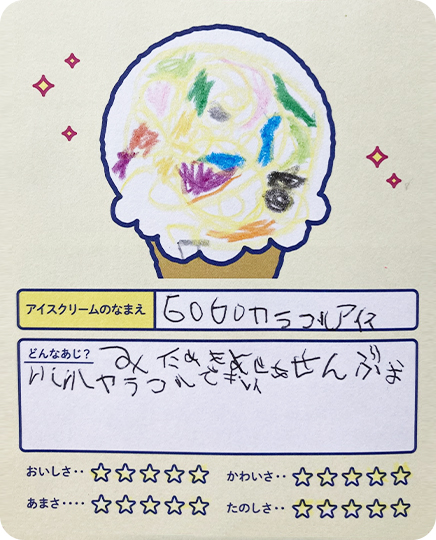 アイスクリームのなまえ GOGOカラフルアイス
どんなあじ? みため ぜんぶお
いしいカラフルできれい
おいしさ‥ ☆☆☆☆☆ かわいさ‥ ☆☆☆☆☆
あまさ‥‥ ☆☆☆☆☆ たのしさ‥ ☆☆☆☆☆